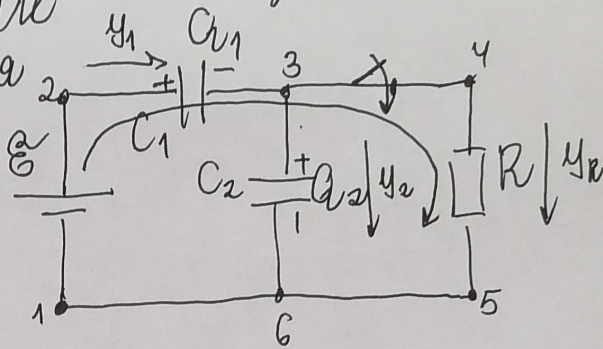 a
y₁
q₁
+ -
2
3
4
ℰ
C₁
C₂
+
q₂
y₂
R
y_R
1
6
5